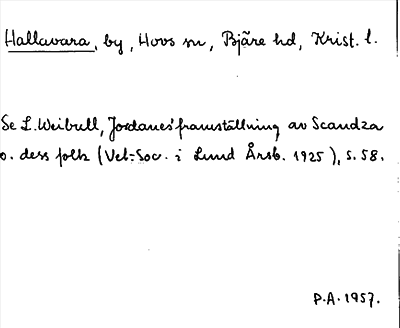 Hallavara, by, Hovs sn, Bjäre hd, Krist. l.
Se L. Weibull, Jordanes' framställning av Scandza
o. dess folk (Vet.-Soc. i Lund Årsb. 1925), s. 58.
P.A. 1957.